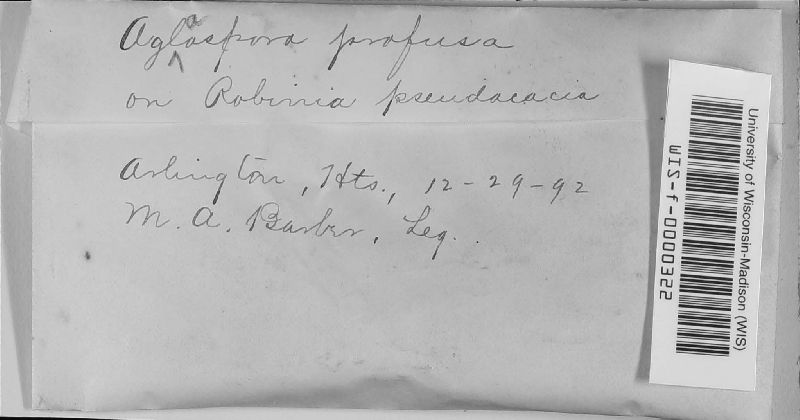 Aglaospora profusa
on Robinia pseudacacia
Arlington, Hts., 12-29-92
M. A. Barber, Leg.
University of Wisconsin-Madison (WIS)
WIS-f-0000322